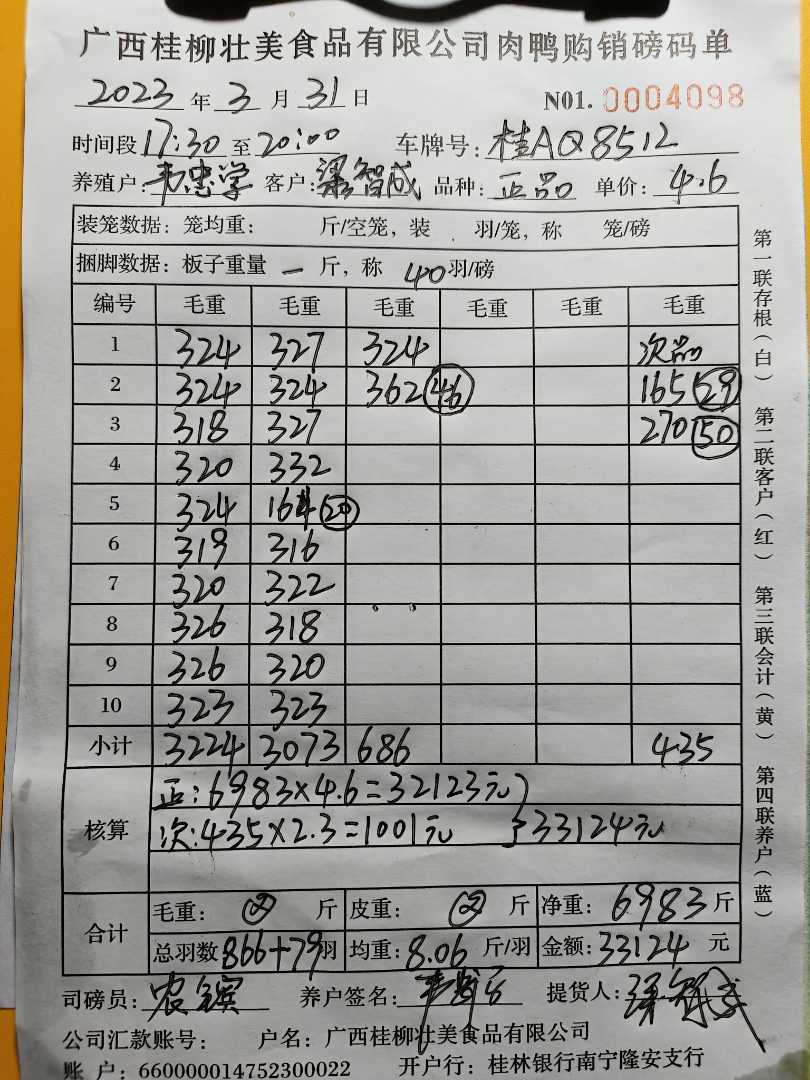 广西桂柳壮美食品有限公司肉鸭购销磅码单
2023 年 3 月 31 日 N01. 0004098
时间段 17:30 至 20:00 车牌号: 桂AQ8512
养殖户: 韦忠学 客户: 梁智成 品种: 正品 单价: 4.6
装笼数据: 笼均重: 斤/空笼, 装 羽/笼, 称 笼/磅
捆脚数据: 板子重量 一 斤, 称 40 羽/磅
编号 毛重 毛重 毛重 毛重 毛重 毛重
1 324 327 324 次品
2 324 324 362 (46) 165 (29)
3 318 327 270 (50)
4 320 332
5 324 164 (20)
6 319 316
7 320 322
8 326 318
9 326 320
10 323 323
小计 3224 3073 686 435
核算 正: 6983×4.6=32123元
次: 435×2.3=1001元 } 33124元
合计 毛重: 斤 皮重: 斤 净重: 6983 斤
总羽数 866+79 羽 均重: 8.06 斤/羽 金额: 33124 元
司磅员: 农镔 养户签名: 提货人: 梁智成
公司汇款账号: 户名: 广西桂柳壮美食品有限公司
账 户: 660000014752300022 开户行: 桂林银行南宁隆安支行
第一联存根(白) 第二联客户(红) 第三联会计(黄) 第四联养户(蓝)